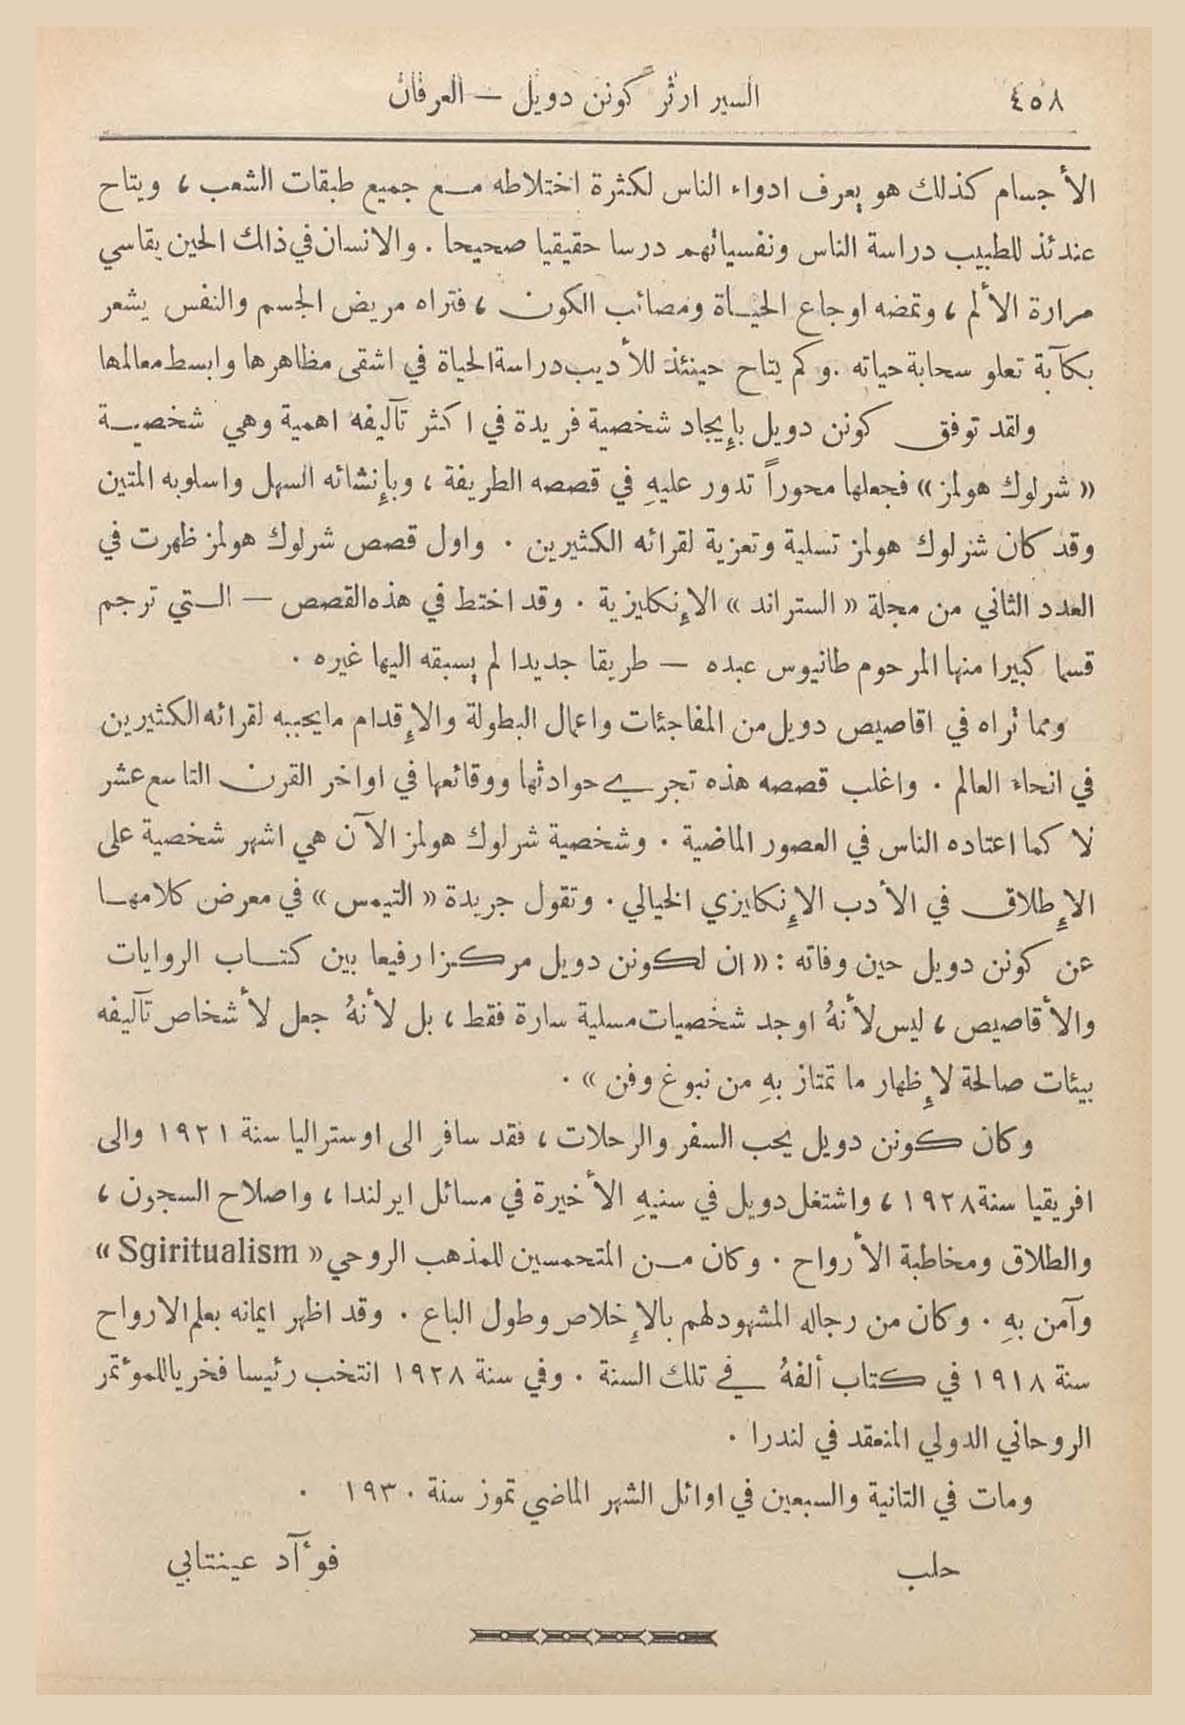 ٤٥٨
السير ارثر كونن دويل — العرفان
الأجسام كذلك هو يعرف ادواء الناس لكثرة اختلاطه مع جميع طبقات الشعب ، ويتاح
عندئذ للطبيب دراسة الناس ونفسياتهم درسا حقيقيا صحيحا . والانسان في ذاك الحين يقاسي
مرارة الألم ، وتمضه اوجاع الحياة ومصائب الكون ، فتراه مريض الجسم والنفس يشعر
بكآبة تعلو سحابة حياته . وكم يتاح حينئذ للأديب دراسة الحياة في اشقى مظاهرها وابسط معالمها
ولقد توفق كونن دويل بإيجاد شخصية فريدة في اكثر تآليفه اهمية وهي شخصية
« شرلوك هولمز » فجعلها محوراً تدور عليهِ في قصصه الطريفة ، وبإنشائه السهل واسلوبه المتين
وقد كان شرلوك هولمز تسلية وتعزية لقرائه الكثيرين . واول قصص شرلوك هولمز ظهرت في
العدد الثاني من مجلة « الستراند » الإنكليزية . وقد اختط في هذه القصص — التي ترجم
قسما كبيرا منها المرحوم طانيوس عبده — طريقا جديدا لم يسبقه اليها غيره .
ومما نراه في اقاصيص دويل من المفاجئات واعمال البطولة والإقدام ما يحببه لقرائه الكثيرين
في انحاء العالم . واغلب قصصه هذه تجري حوادثها ووقائعها في اواخر القرن التاسع عشر
لا كما اعتاده الناس في العصور الماضية . وشخصية شرلوك هولمز الآن هي اشهر شخصية على
الإطلاق في الأدب الإنكليزي الخيالي . وتقول جريدة « التيمس » في معرض كلامها
عن كونن دويل حين وفاته : « ان لكونن دويل مركزا رفيعا بين كتاب الروايات
والأقاصيص ، ليس لأنهُ اوجد شخصيات مسلية سارة فقط ، بل لأنهُ جعل لأشخاص تآليفه
بيئات صالحة لإظهار ما تمتاز بهِ من نبوغ وفن » .
وكان كونن دويل يحب السفر والرحلات ، فقد سافر الى اوستراليا سنة ١٩٢١ والى
افريقيا سنة ١٩٢٨ ، واشتغل دويل في سنيهِ الأخيرة في مسائل ايرلندا ، واصلاح السجون ،
والطلاق ومخاطبة الأرواح . وكان من المتحمسين للمذهب الروحي « Sgiritualism »
وآمن بهِ . وكان من رجاله المشهود لهم بالإخلاص وطول الباع . وقد اظهر ايمانه بعلم الارواح
سنة ١٩١٨ في كتاب ألفهُ في تلك السنة . وفي سنة ١٩٢٨ انتخب رئيسا فخريا للموءتمر
الروحاني الدولي المنعقد في لندرا .
ومات في الثانية والسبعين في اوائل الشهر الماضي تموز سنة ١٩٣٠ .
حلب
فوءآد عينتابي